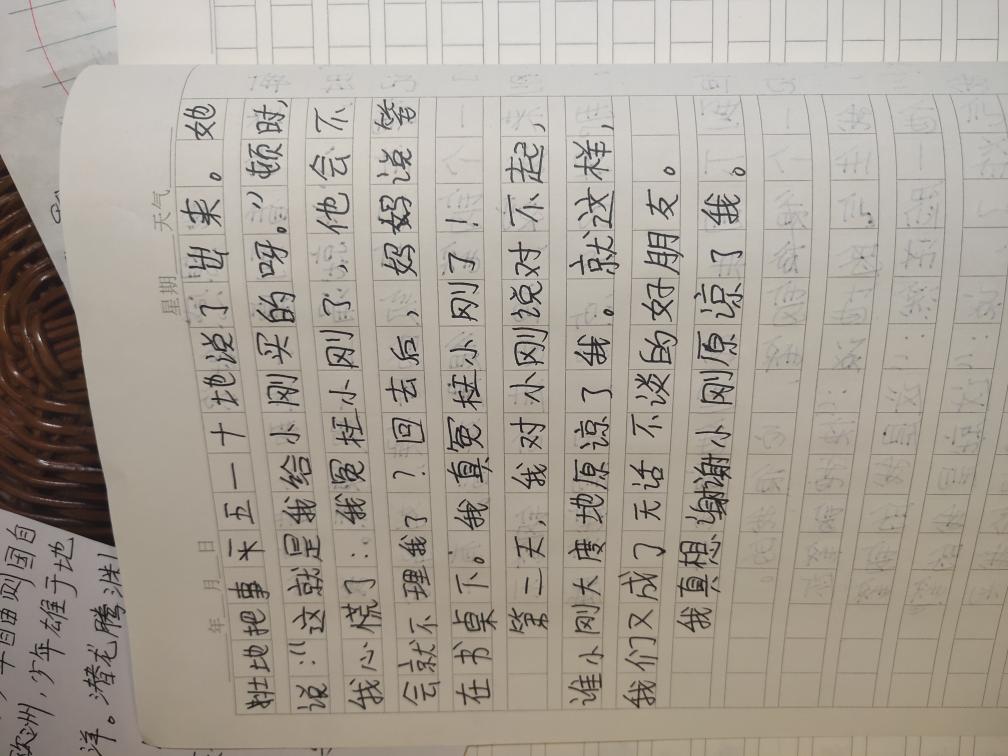 年 月 日 星期 天气
她把事一五一十地说了出来。她
说：“这就是我给小刚买的呀。”顿时，
我心慌了：我冤枉小刚了，他会不
会就不理我了？回去后，妈妈说答
在书桌下。我真冤枉小刚了！
第二天，我对小刚说对不起，
谁小刚大度地原谅了我。就这样，
我们又成了无话不谈的好朋友。
我真想谢谢小刚原谅了我。
欧洲，少年雄于地
洋。潜龙腾渊